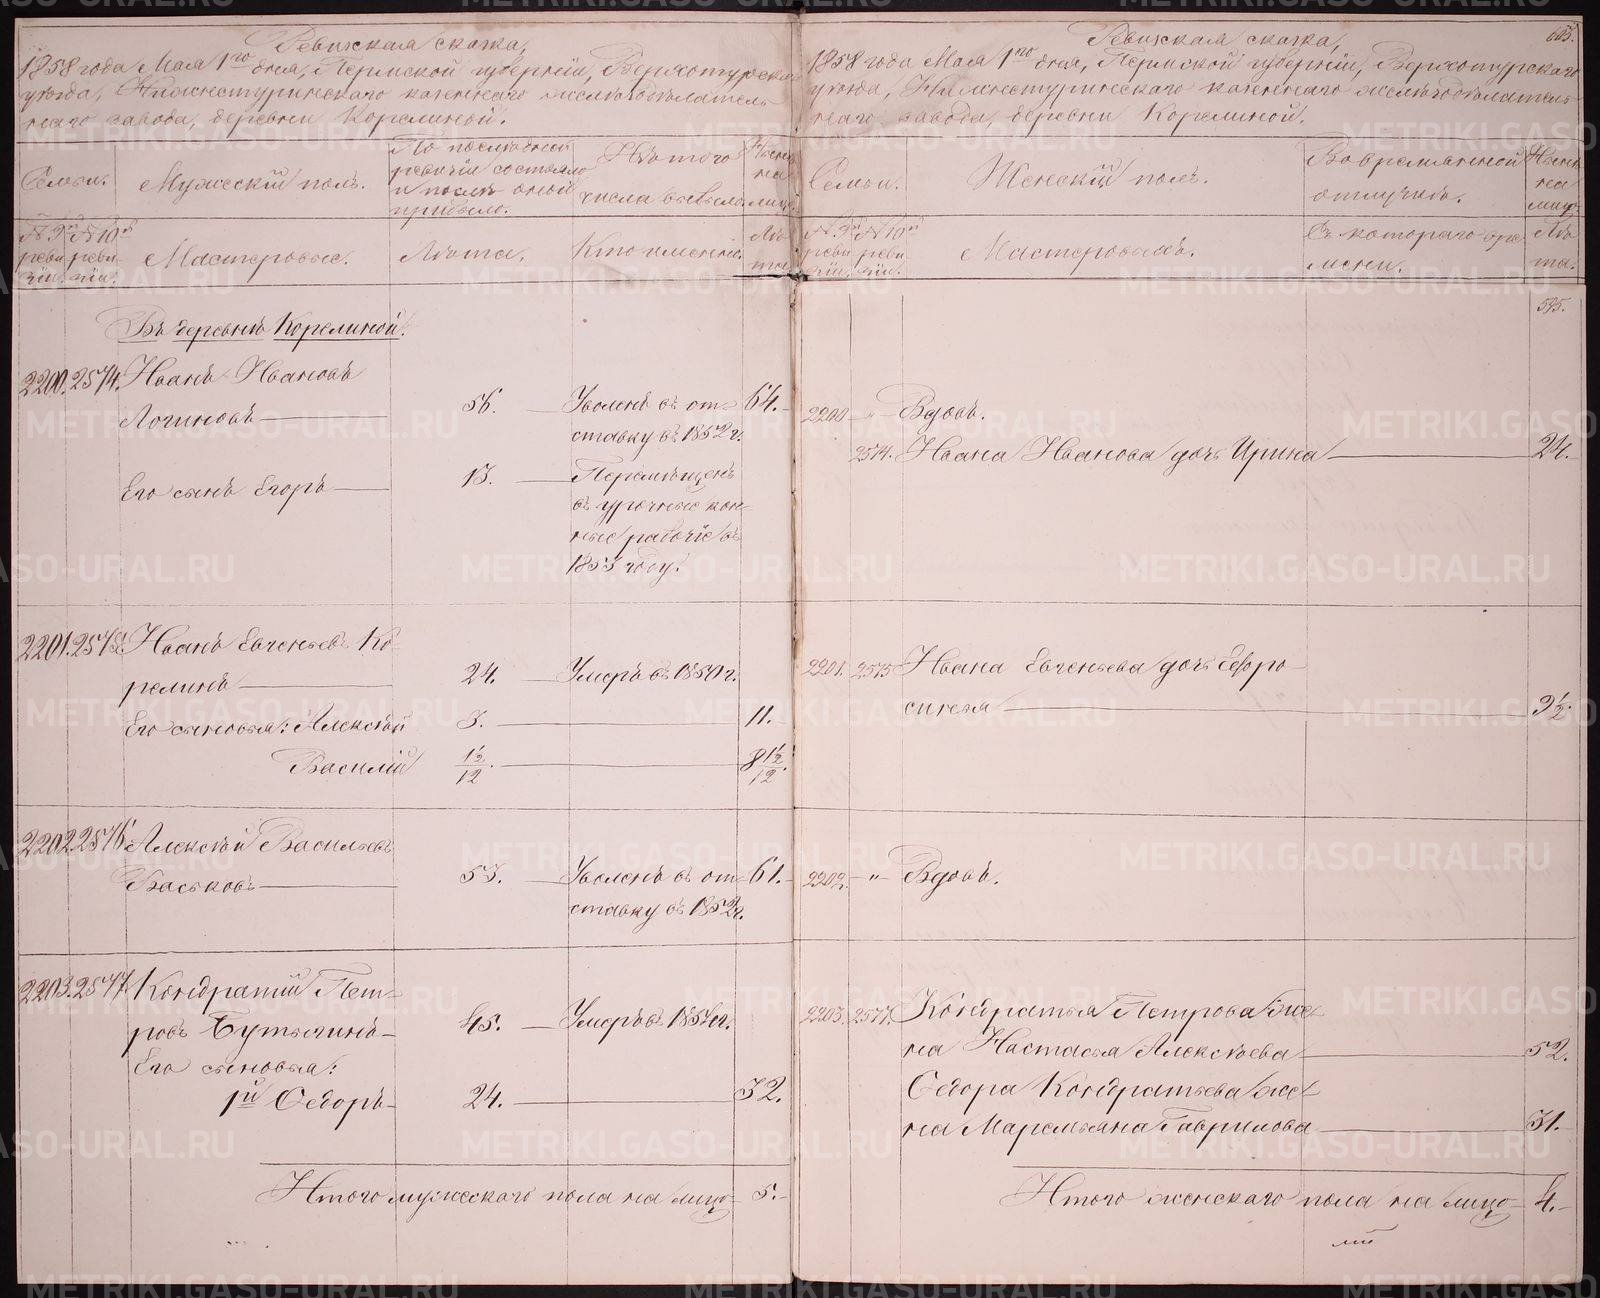 Ревизская сказка,
1858 года Мая 1го дня, Пермской губернии, Верхотурскаго
уезда, Нижнетуринскаго казеннаго железоделатель-
наго завода, деревни Корелиной.
Семьи.
Мужескій полъ.
По последней
ревизіи состояло
и после оной
прибыло.
Изъ того
числа выбыло.
Ныне
на
лицо.
№ 9й
реви-
зіи.
№ 10й
реви-
зіи.
Мастеровые.
Лета.
Кто именно.
Ле-
та.
Въ деревне Корелиной.
2200. 2574. Иванъ Ивановъ
Логиновъ 56. Уволенъ въ от- 64.
ставку въ 1852 г.
Его сынъ Егоръ 13. Перемещенъ
въ урочные кон-
ные рабочіе въ
1853 году.
2201. 2575. Иванъ Евгеньевъ Ко-
релинъ 24. Умеръ въ 1850 г.
Его сыновья: Алексей 3. 11.
Василій 1½/12. 8 1½/12.
2202 2576 Алексей Васильевъ
Васьковъ 53. Уволенъ въ от- 61.
ставку въ 1852 г.
2203. 2577. Кондратій Пет-
ровъ Бутыгинъ 45. Умеръ въ г.
Его сыновья:
1й Федоръ 24. 32.
Итого мужескаго пола на лицо 5.
603.
Ревизская сказка,
1858 года Мая 1го дня, Пермской губерніи, Верхотурскаго
уезда, Нижнетуринскаго казеннаго железоделатель-
наго завода, деревни Корелиной.
Семьи.
Женскій полъ.
Во временной
отлучке.
Ныне
на
лицо.
№ 9й
реви-
зіи.
№ 10й
реви-
зіи.
Мастеровымъ.
Съ котораго вре-
мени.
Ле-
та.
595.
2200 „ Вдовъ.
2574. Ивана Иванова дочь Ирина 24.
2201. 2575 Ивана Евгеньева дочь Ефро-
синья 9½.
2202. „ Вдовъ.
2203. 2577. Кондратья Петрова же-
на Настасья Алексеева 52.
Федора Кондратьева же-
на Маремьяна Гаврилова 31.
Итого женскаго пола на лицо 4.
METRIKI.GASO-URAL.RU